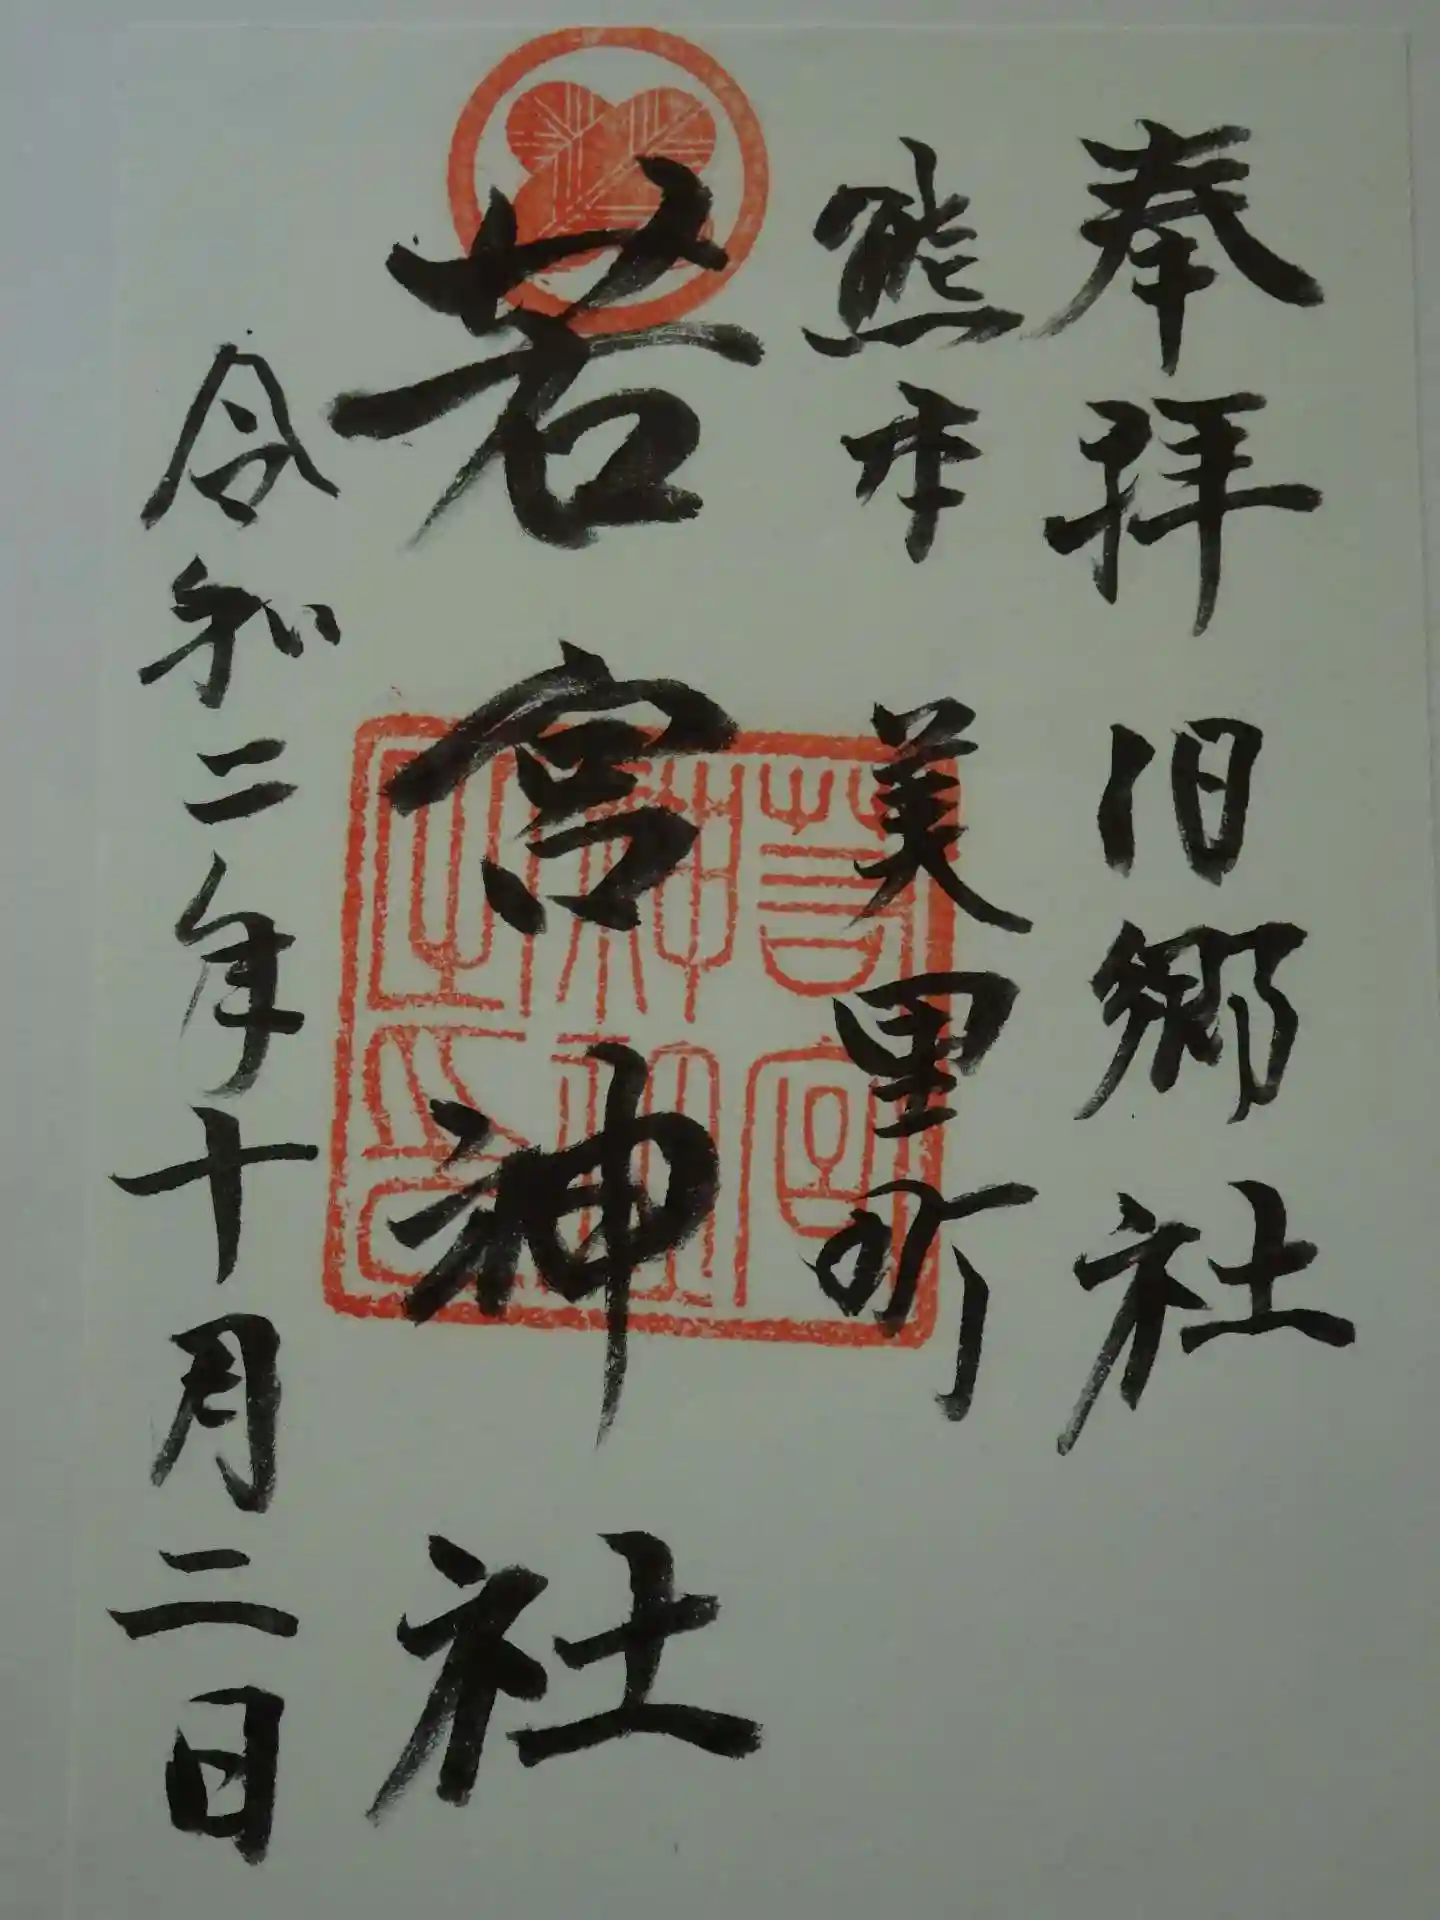 奉拝 旧郷社
熊本 美里町
若宮神社
令和二年十月二日
若宮神社之印